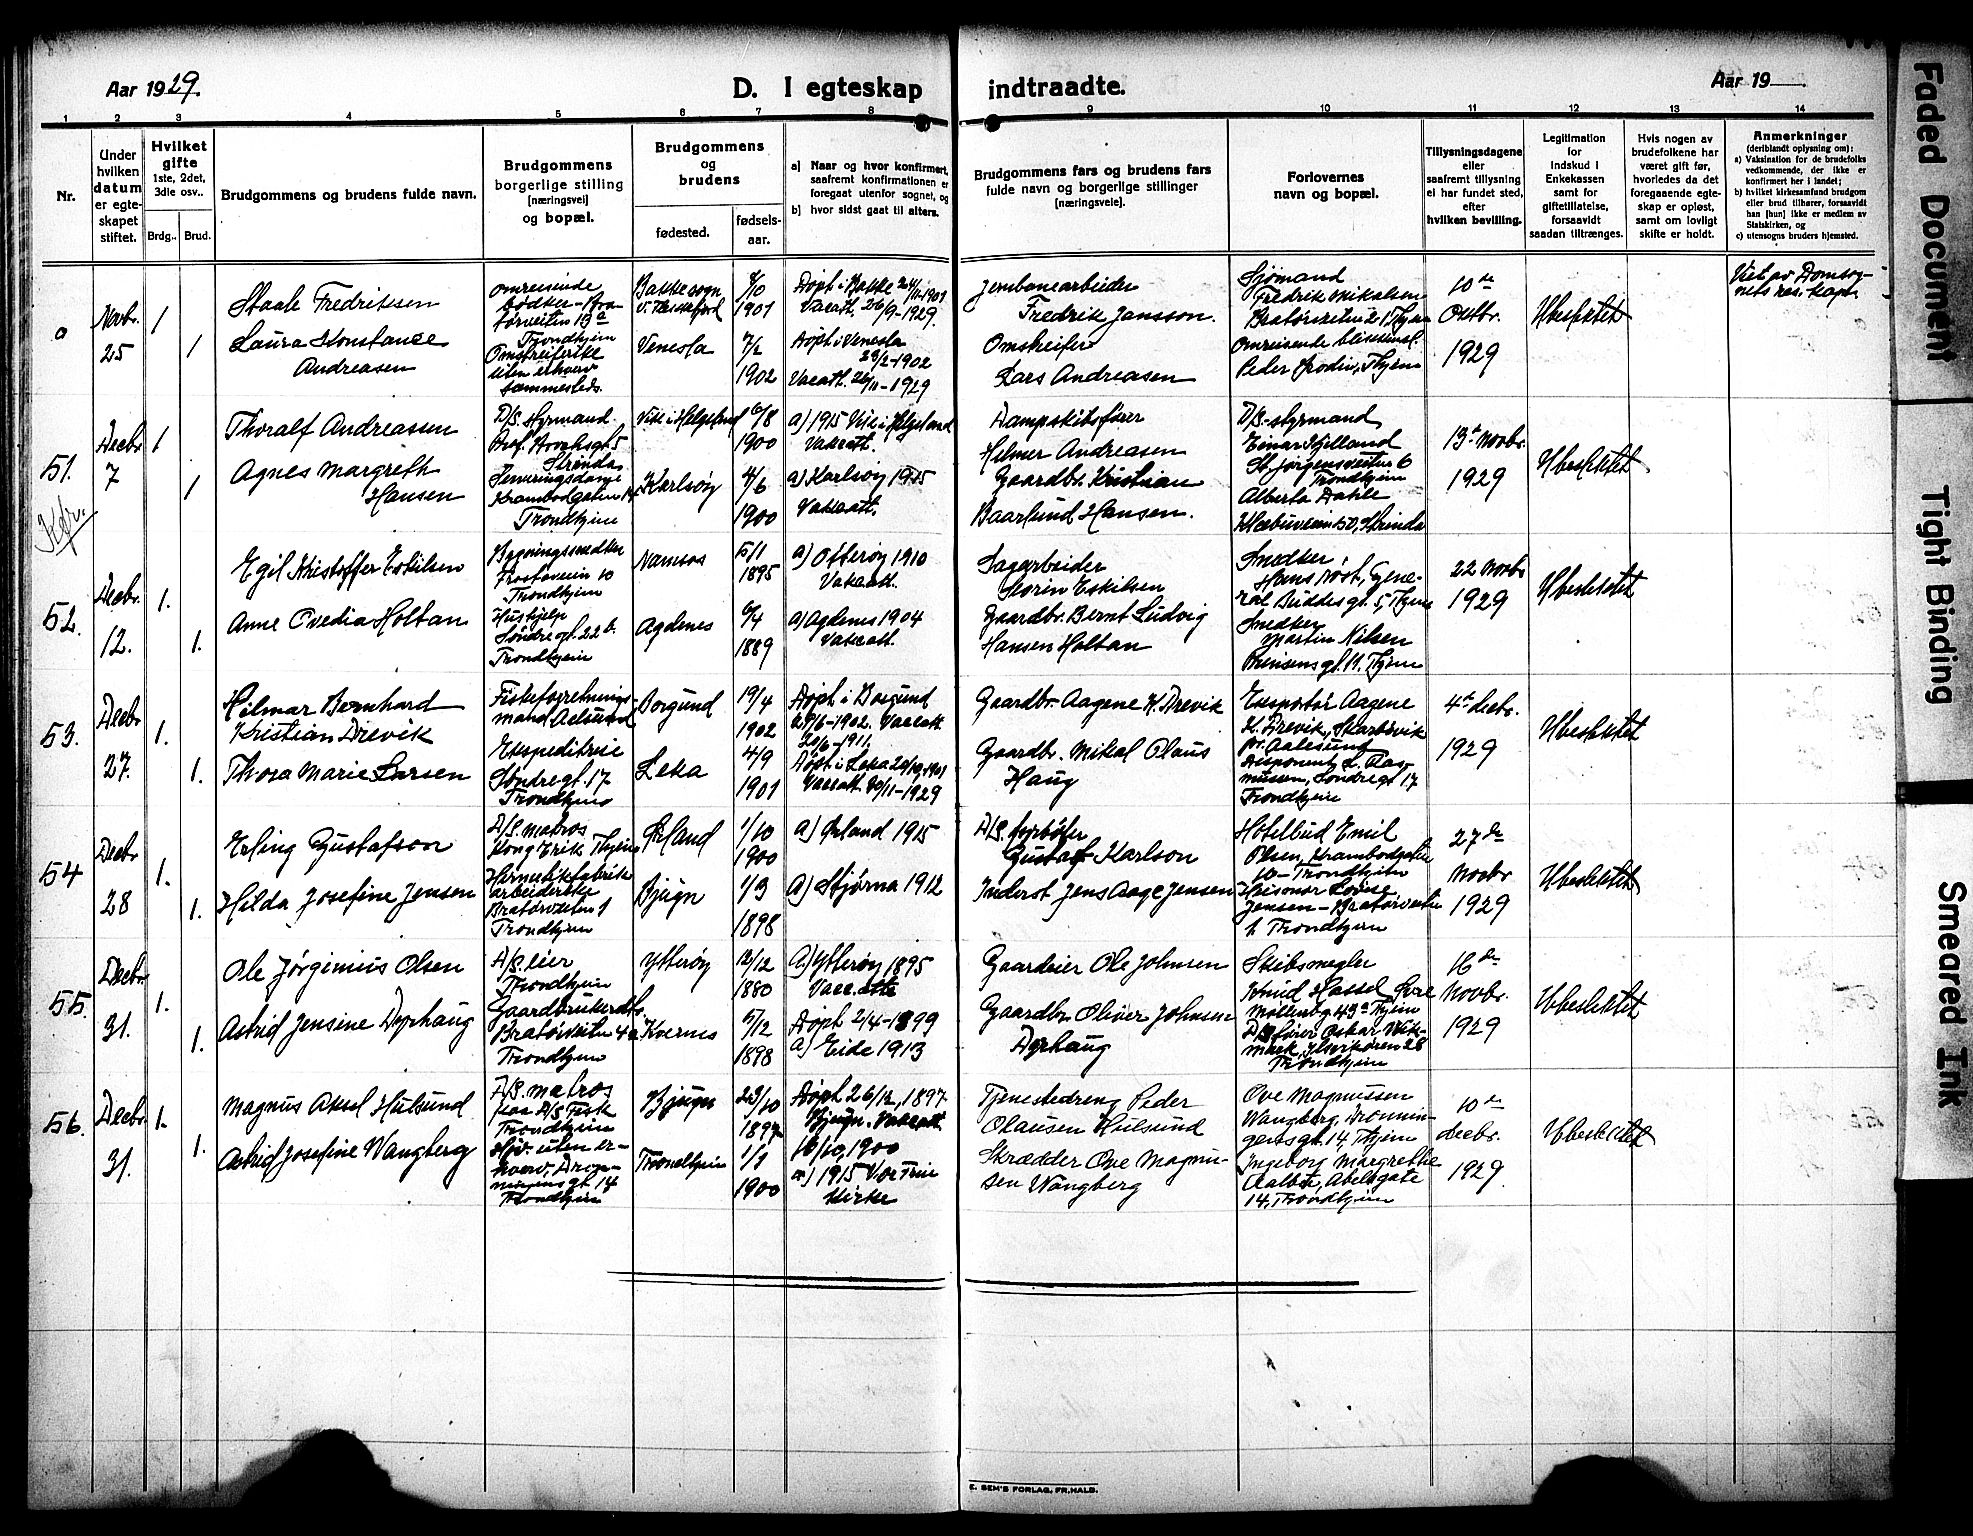 Aar 1929.
D. I egteskap indtraadte.
Aar 19
1 2 3 4 5 6 7 8 9 10 11 12 13 14
Nr.
Under hvilken datum er egte-skapet stiftet.
Hvilket gifte 1ste, 2det, 3die osv..
Brdg.. Brud.
Brudgommens og brudens fulde navn.
Brudgommens borgerlige stilling [næringsvei] og bopæl.
Brudgommens og brudens
fødested. fødsels-aar.
a) Naar og hvor konfirmert, saafremt konfirmationen er foregaat utenfor sognet, og
b) hvor sidst gaat til alters.
Brudgommens fars og brudens fars fulde navn og borgerlige stillinger [næringsveie].
Forlovernes navn og bopæl.
Tillysningsdagene eller saafremt tillysning ei har fundet sted, efter hvilken bevilling.
Legitimation for Indskud i Enkekassen samt for giftetilladelse, forsaavidt saadan tiltrænges.
Hvis nogen av brudefolkene har været gift før, hvorledes da det foregaaende egte-skap er opløst, samt om lovligt skifte er holdt.
Anmerkninger (deriblandt oplysning om):
a) Vaksination for de brudefolks vedkommende, der ikke er konfirmert her i landet;
b) hvilket kirkesamfund brudgom eller brud tilhører, forsaavidt han [hun] ikke er medlem av Statskirken, og
c) utensogns bruders hjemsted.
o
Novbr. 25
1
1
Staale Fredriksen
Laura Konstance
Andreasen
omreisende
Trondhjem
uten erhverv
sammesteds.
Bakke sogn
Venesla
8/10
1901
7/2
1902
Døpt i Bakke 24/11-1901
Vacatt. 26/9-1929.
Døpt i Venesla
23/2-1902
Vacatt. 26/11-1929
Jernbanearbeider
Fredrik Jansson.
Omstreifer
Lars Andreasen
Sjømand
Fredrik Mikalsen
Peder Frodin, Thjem
10de
Oktbr.
1929
Ubeslektet
Viet av Domsog-
nets res. kap.
51.
Decbr 7
1
1
Thoralf Andreassen
Agnes Margreth
Hansen
D/S. Styrmand.
Strinda
Serveringsdame
Trondhjem
Vik i Helgeland
Karlsøy
6/8
1900
4/6
1900
a) 1915 Vik i Helgeland
Vaksatt.
a) Karlsøy 1915
Vaksatt.
Dampskibsfører
Helmer Andreasen
Gaardbr. Kristian
Baarlund Hansen.
D/S.-styrmand
Einar Kjelland
St. Jørgensveiten 6
Trondhjem
Alberta Dahle
Klæbuveien 50, Strinda
13de Novbr.
1929
Ubeslektet
52.
Decbr. 12.
1.
1.
Egil Kristoffer Eskilsen
Anne Ovedia Holtan
Bygningssnedker
Frostaveien 10
Trondhjem
Hushjelp
Søndre gt. 22 b.
Trondhjem
Namsos
Agdenes
5/1
1895
6/4
1889
a) Otterøy 1910
Vaksatt.
a) Agdenes 1904
Vaksatt.
Sagarbeider
Sørin Eskilsen
Gaardbr. Bernt Ludvig
Hansen Holtan
Snedker
Hans Røst, Gene-
ral Buddes gt. 5, Thjem
Snedker
Martin Nilsen
Prinsens gt. 11. Thjem
22 Novbr
1929
Ubeslektet
53.
Decbr 27.
1.
1.
Hilmar Bernhard
Kristian Drevik
Thora Marie Larsen
Fiskeforretnings-
mand Aalesund
Ekspeditrise
Søndregt. 17
Trondhjem
Borgund
Leka
19/4
1902
4/9
1901
Døpt i Borgund
29/6-1902. Vaccatt
20/6-1911
Døpt i Leka 20/10-1901
Vaccatt. 20/11-1929
Gaardbr. Aagene K. Drevik
Gaardbr. Mikal Olaus
Haug
Eksportør Aagene
K. Drevik, Skarbøvik
pr. Aalesund
Disponent L. Ras-
mussen, Søndregt 17
Trondhjem
4de decbr.
1929
Ubeslektet
54
Decbr 28
1.
1.
Erling Gustafson
Hilda Josefine Jensen
D/S. matros
Kong Erik Thjem
Hermetikfabrik-
arbeiderske
Bratørveiten 1
Trondhjem
Ørland
Bjugn
1/10
1900
1/3
1898
a) Ørland 1915
a) Stjørna 1912
D/S. fyrbøter
Gustaf Karlson
Inderst Jens Aage Jensen
Hotelbud Emil
Olsen, Krambodgaten
10 - Trondhjem
Jensen - Bratørveiten
1. Trondhjem
27de
Novbr
1929
Ubeslektet
55.
Decbr. 31.
1.
1.
Ole Jørginius Olsen
Astrid Jensine Dyrhaug
D/S. eier
Trondhjem
Gaardbrukerdtr.
Bratørveiten 4a
Trondhjem
Ytterøy
Kvernes
12/12
1880
5/12
1898
a) Ytterøy 1895
Vacc.atte
Døpt 2/4-1899
a) Eide 1913
Gaardeier Ole Johnsen
Gaardbr. Oliver Johnsen
Dyrhaug
Skibsmegler
Knud Hassel, Øvre
Møllenbg 43a Thjem
D/S fører Oskar Wik-
mark, Ilsvikøren 28
Trondhjem
16de
Novbr.
1929
Ubeslektet
56.
Decbr. 31.
1.
1.
Magnus Aksel Hulsund
Astrid Josefine Wangberg
D/S. matros
Trondhjem
Hjv. uten er-
hverv, Dron-
ningens gt. 14
Trondhjem
Bjugn
Trondhjem
23/10
1897
1/1
1900
Døpt 26/12, 1897
Bjugn. Vaccatt.
16/10, 1900
a) 1915 Vor Frue
Kirke
Tjenestedreng Peder
Olausen Hulsund
Skrædder Ove Magnu-
sen Wangberg
Ove Magnussen
Wangberg, Dronnin-
gensgt. 14, Thjem
Ingeborg Margrethe
Aalbu, Abelsgate
14, Trondhjem
10de
decbr.
1929
Ubeslektet
E. SEM'S FORLAG, FR.HALD.
Faded Document
Tight Binding
Smeared Ink